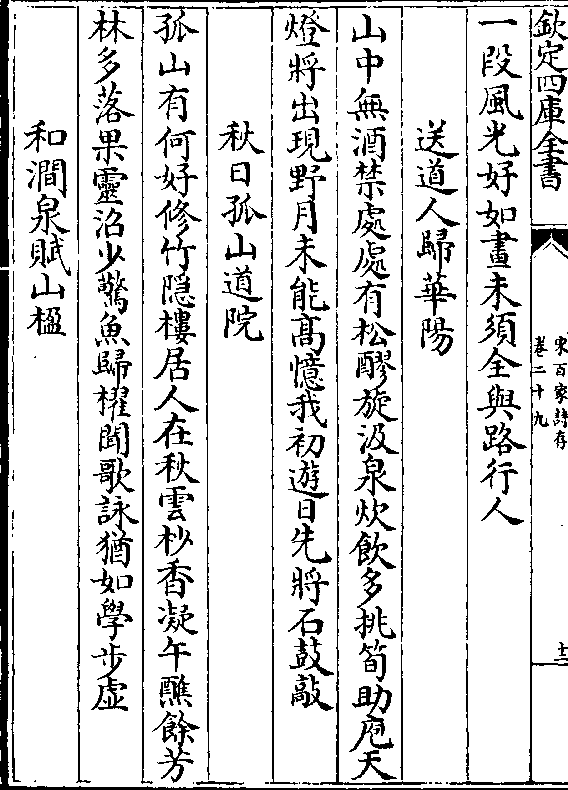 欽定四庫全書
宋百家詩存
卷二十九
十二
一段風光好如畫未須全與路行人
送道人歸華陽
山中無酒禁處處有松醪旋汲泉炊飲多挑筍助庖天
燈將出現野月未能髙憶我初遊日先將石鼓敲
秋日孤山道院
孤山有何好修竹隠樓居人在秋雲杪香凝午醮餘芳
林多落果靈沼少驚魚歸櫂聞歌詠猶如學步虛
和澗泉賦山楹